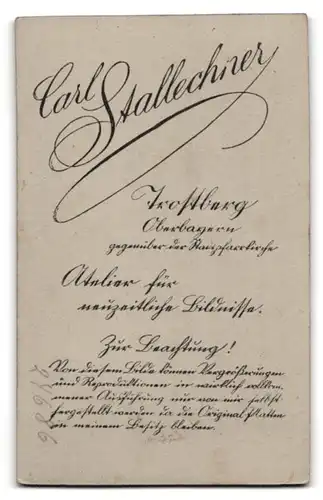 Carl Stallechner
Trostberg
Oberbayern
gegenüber der Stadtpfarrkirche
Atelier für
neuzeitliche Bildnisse.
Zur Beachtung!
Von diesem Bilde können Vergrößerungen
und Reproduktionen in wirklich vollkom-
mener Ausführung nur von mir selbst
hergestellt werden da die Original Platten
in meinem Besitz bleiben.